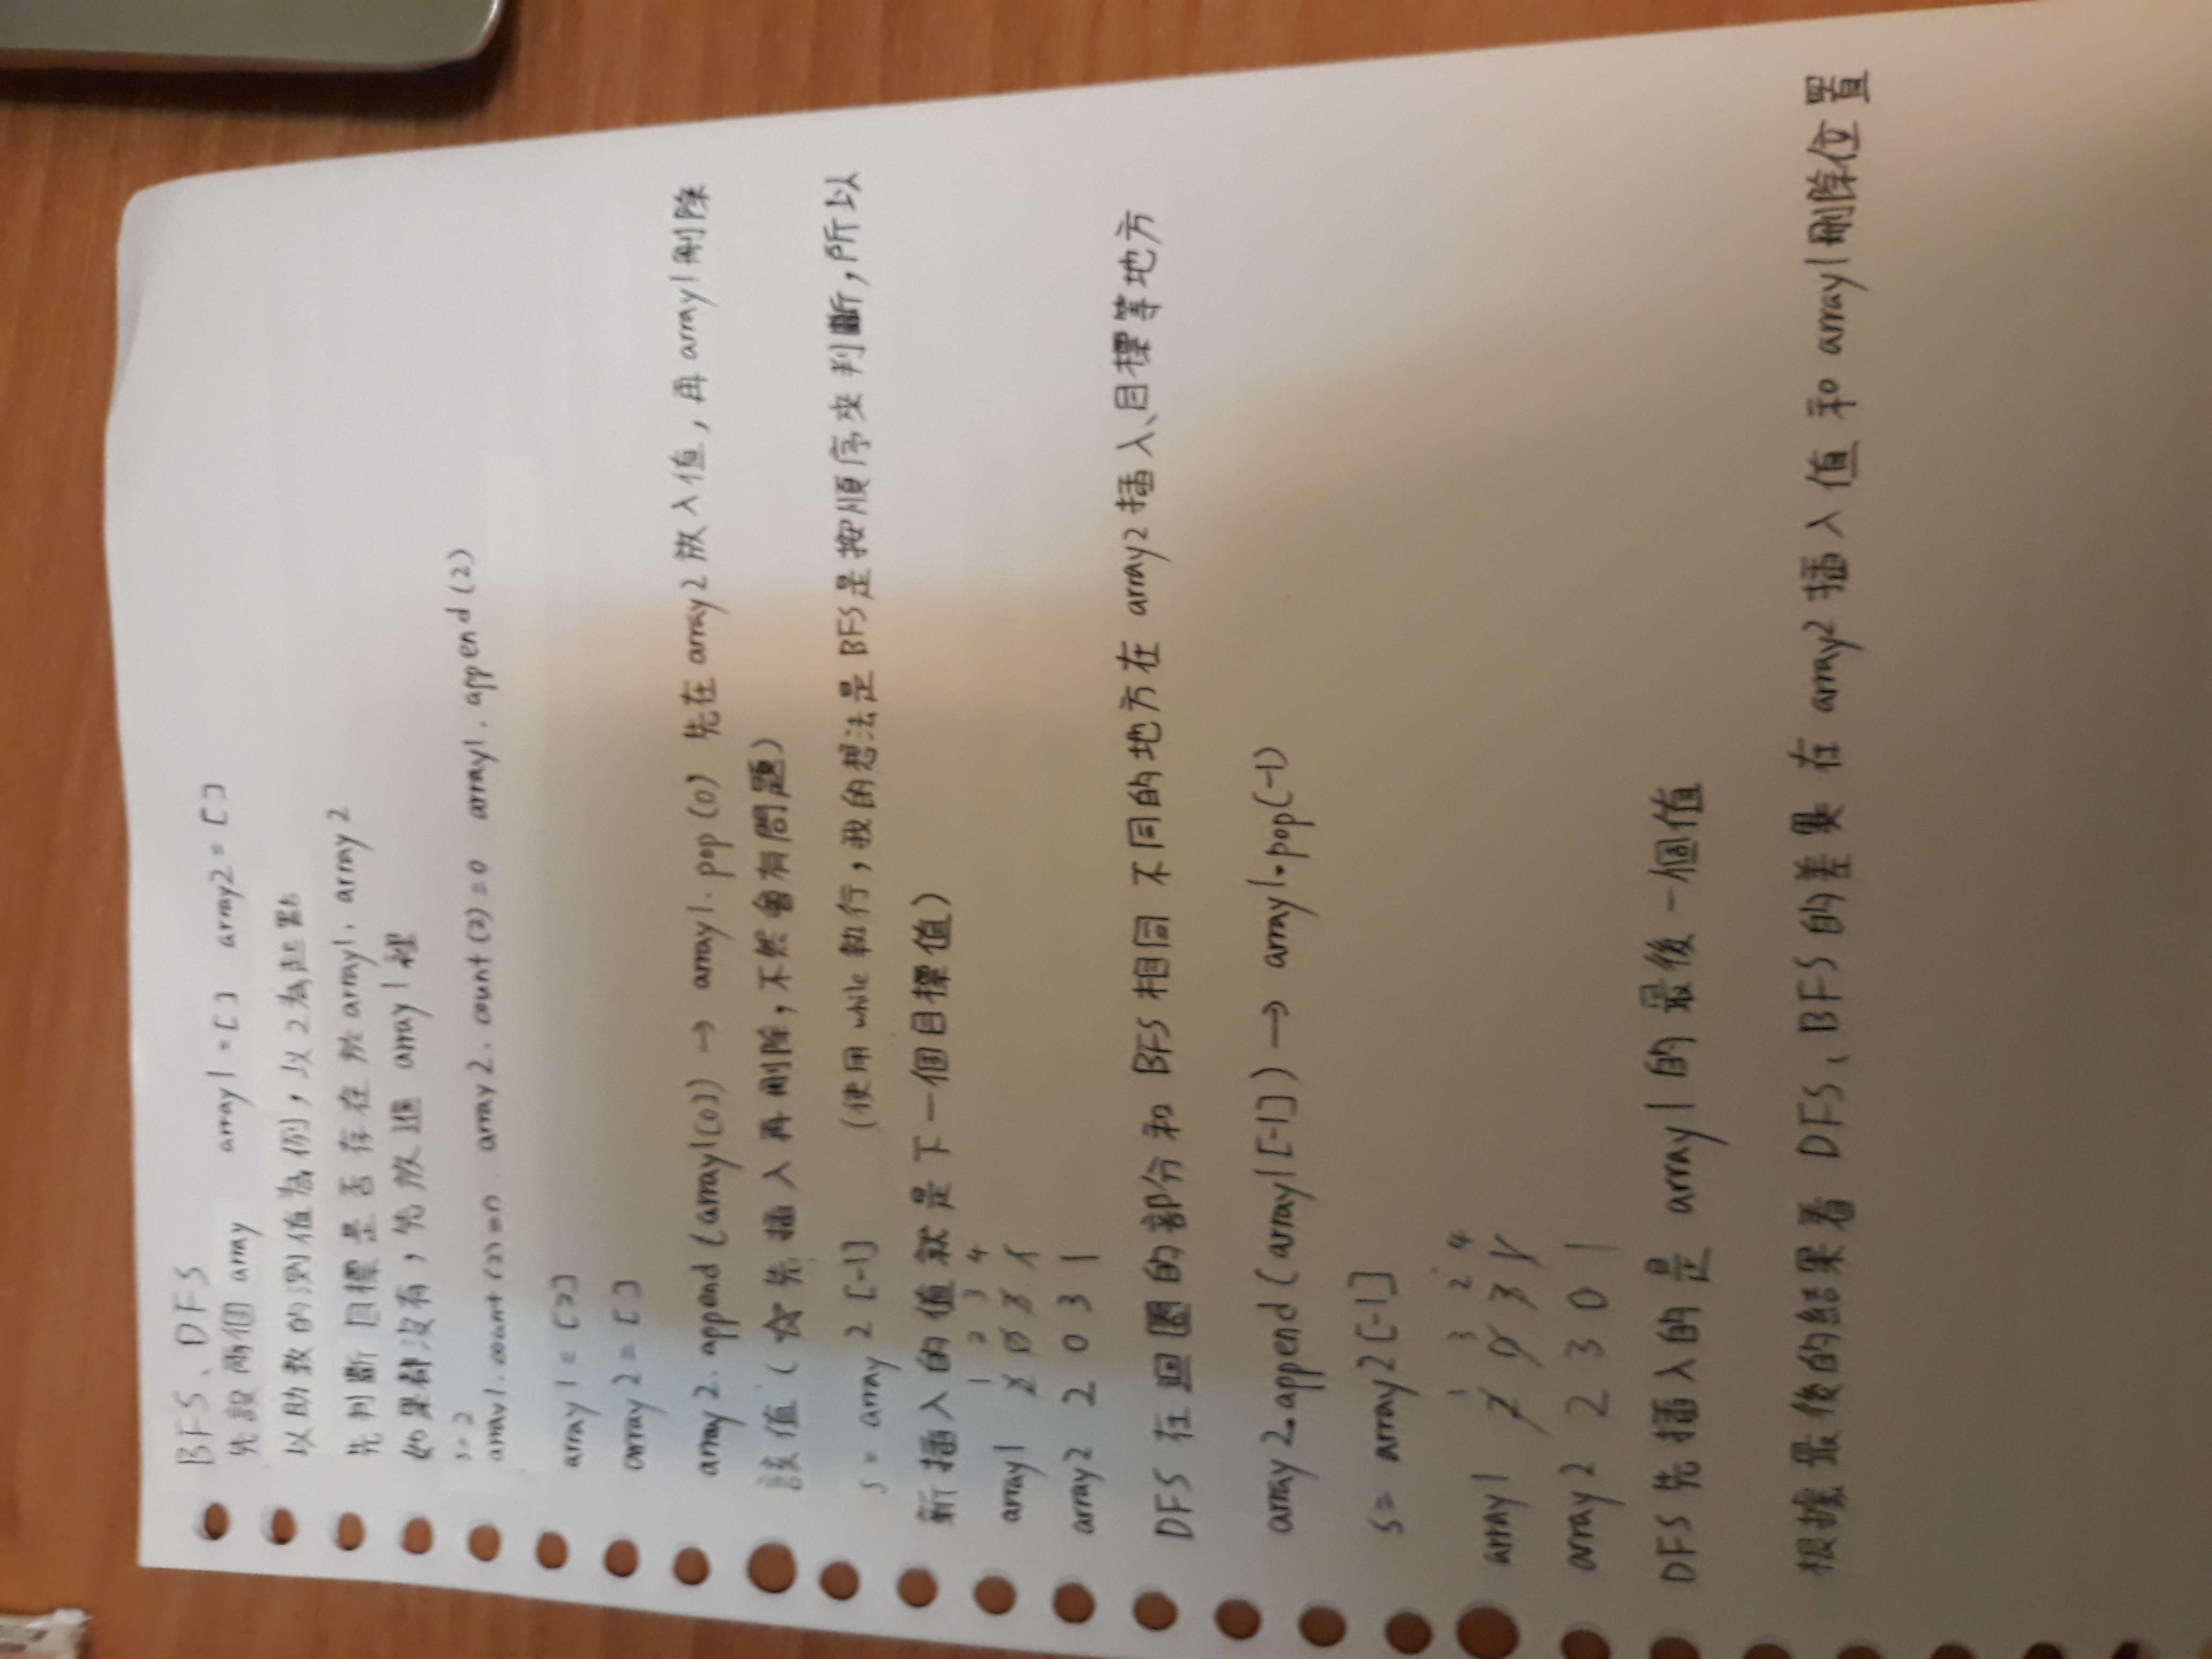 BFS、DFS
先設兩個 array array1 = [ ] array2 = [ ]
以助教的測值為例，以2為起點
先判斷目標是否存在於array1、array2
如果都沒有，先放進 array1 裡
s = 2
array1.count(2)=0、array2.count(2)=0 array1.append(2)
array1 = [2]
array2 = [ ]
array2.append(array1[0]) → array1.pop(0) 先在array2放入值，再array1刪除
該值（☆先插入再刪除，不然會有問題）
s = array2[-1] （使用while執行，我的想法是BFS是按順序來判斷，所以
新插入的值就是下一個目標值）
1 2 3 4
array1 2 0 3 1
array2 2 0 3 1
DFS 在迴圈的部分和 BFS 相同 不同的地方在 array2 插入、目標等地方
array2.append(array1[-1]) → array1.pop(-1)
s = array2[-1]
1 3 2 4
array1 2 0 3 1
array2 2 3 0 1
DFS先插入的是 array1 的最後一個值
根據最後的結果看 DFS、BFS 的差異 在 array2 插入值 和 array1刪除位置